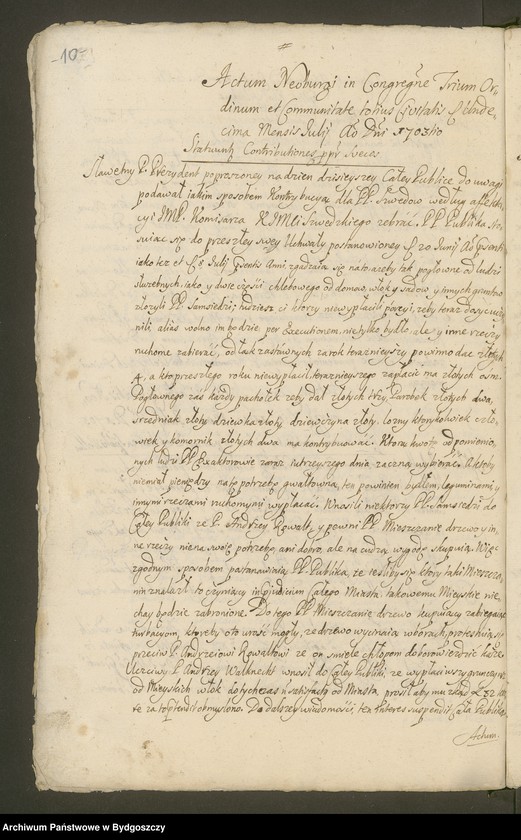 -10-
Actum Neoburgi in Congregne Trium Or-
dinum et Communitate totius Civitatis
cima Mensis Julij Ao Dni 1703tio
Contributiones ppr Svecos
Sławetny P. Prezydent poproszoney na dzien dzisieyszy Całey Publice do uwagi
podawał iakim sposobem Kontrybucya dla PP. Szwedow według
cyi IMP. Komisarza KJMCi Szwedzkiego zebrać. PP Publika
się do przeszłey swey Uchwały postanowioney 20 Junij
iako tez et Julij Anni zgadzała się na to aczeby tak pogłowne od ludzi
słuzebnych, iako y dwie częsci chlebowego od domow, włok y sadow y innych gruntow
złozyli PP Samsiedzi, tudziesz ci ktorzy nie wypłacili zeby teraz dosyc uczy
nili, alias wolno im będzie per Executionem, nie tylko bydło, ale y inne rzeczy
ruchome zabierać, od łask zastawnych za rok terazniejszy powinno dac złotych
4, a kto przeszłego roku nie wypłacił, terazniejszego zapłacic ma złotych osm.
Pogłownego zas kazdy pachołek zeby dał złotych trzy, Parobek złotych dwa,
srzedniak złoty dziewka złoty, dziewczyna złoty, lozny ktorykolwiek czło,
wiek y komornik złotych dwa ma kontrybuować. Ktorą kwotę od pomienio,
nych ludzi PP Exaktorowie zaraz iutrzeyszego dnia zaczną wybierać. A ktoby
niemiał pieniędzy na tę potrzebę gwałtowną, ten powinien bydłem, leguminami y
innymi rzeczami ruchomymi wypłacać. Wnosili niektorzy PP. Samsiedzi do
Całey Publiki ze P. Andrzey Kowalt, y pewni PP Mieszczanie drzewo y in,
ne rzeczy nie na swoię potrzebę, ani dobra, ale na cudzą wygodę skupuią. Więc
zgodnym sposobem postanawia PP Publika, ze iesliby się ktory taki Mieszcza,
nin znalazł to czyniący in prejudicium Całego Miasta takowemu Mieyskie nie,
chay będzie zabronione. Do tego PP Mieszczanie drzewo kupuiący zabiegaiąc
turbacyom, ktoreby oto urość mogły, ze drzewo wycinaią w borach protestuią się
przeciw P. Andrzeiowi Kowaltowi ze on smiele chłopom
Uczciwy P Andrzey Walknecht wnosił do Całey Publiki, ze wypłaciwszy
od Mieyskich włok dotychczas Satisfactij od Miasta prosił aby mu
re za obmysłono. Do dalszey wiadomosci, ten Interes suspendit Cała Publika.
Actum
Archiwum Państwowe w Bydgoszczy